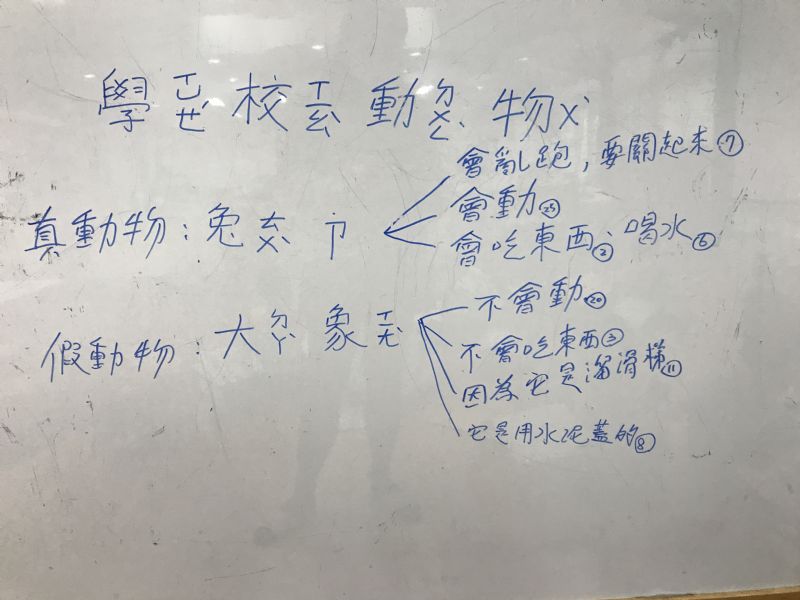 學ㄒㄩㄝˊ校ㄒㄧㄠˋ動ㄉㄨㄥˋ物ㄨˋ
會亂跑,要關起來⑦
真動物:兔ㄊㄨˋㄗ
會動㉕
會吃東西②、喝水⑥
假動物:大ㄉㄚˋ象ㄒㄧㄤˋ
不會動⑳
不會吃東西③
因為它是溜滑梯⑪
它是用水泥蓋的⑧